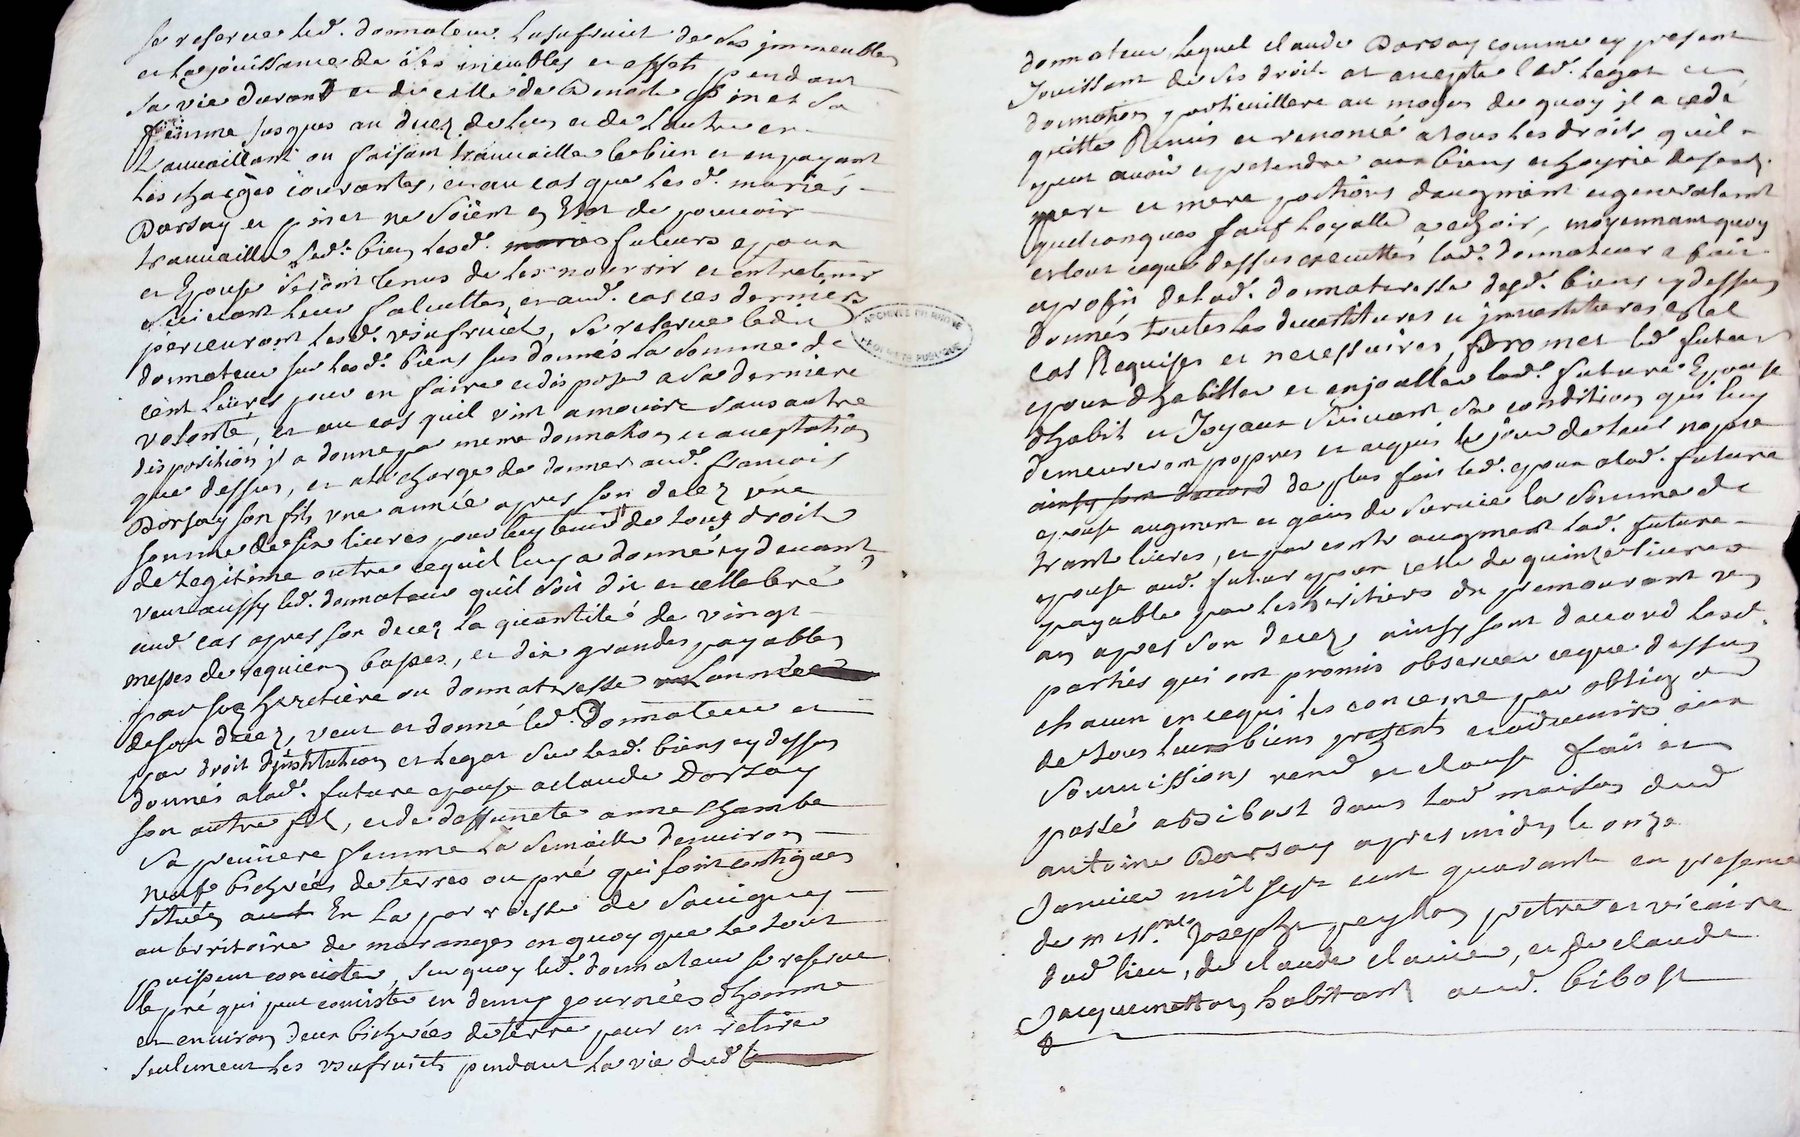 se reserve led. donnateur Lusufruict de ses jmmeubles
et la jouissance de ses meubles et effets pendant
sa vie durant et de celle de Pinet sa
femme jusques au decez de lun et de Lautre en
travaillant ou faisant travailler le bien et en payant
les charges courantes, et au cas que les d. mariés
Dorsay et pinet ne soient en Etat de pouvoir
travailler led. bien lesd. futurs epoux
et Epouse seront tenus de les nourrir et entretenir
suivant leur facultes, et aud. cas ces derniers
perceuront lesd. usufruict, se reserve ledit
donnateur sur lesd. biens sus donnés la somme de
cent livres pour en faire et disposer a sa derniere
volonté, et au cas quil vint a mourir sans autre
disposition jl a donne par meme donnation et acceptation
que dessus, et a la charge de donner aud. francois
Dorsay son fils une année apres son decez une
somme de six livres pour luy tenir de tous droits
de Legitime outre ce quil luy a donné cy devant
veut aussy led. donnateur quil soit dit et cellebré
aud. cas apres son decez la quantité de vingt
messes de requiem basses, et dix grandes payables
par son heretiere ou donnateresse Lannée
de son decez, veut et donne led. Donnateur et
par droit djnstitution et legat sur lesd. biens cy dessus
donnés a lad. future epouse a claude Dorsay
son autre fil, et de deffunete anne chambe
sa premiere femme la semaille denviron
neuf bicherées de terres ou pré qui sont contigues
situées En La parroisse de Savigny
au territoire de maranges en quoy que le tout
puissent concister, sur quoy led. donnateur se reserve
le pré qui peut concister en demy journées dhomme
et environ deux bicherées de terre pour en retirer
seulement les usufruits pendant la vie dud.
donnateur lequel claude Dorsay comme cy present
Jouissant de ses droits at accepte lad. legat et
donnation particuillere au moyen de quoy jl a cedé
quitté Remis et renoncé a tous les droits quil
peut avoir et pretendre aux biens et hoyrie de son
pere et mere portions daugment et generalement
quelconques sauf loyalle a echoir, moyennant quoy
et tout ceque dessus executtés led. donnateur a fait
a profit de lad. donnateresse desd. biens cy dessus
donnés toutes les devestitures et jnvestitures en tel
cas Requises et necessaires, promet led. futur
epoux dhabiller et enjoaller lad. future Epouse
dhabit et Joyaux suivant sa condition qui luy
demeureront propres et acquis le jour de leur nopce
ainsy sont daccord de plus fait led. epoux a lad. future
epouse augment et gain de survie la somme de
trante livres, et par contre augment lad. future
epouse aud. futur epoux celle de quinze livres
payable par les heritiers du premourant un
an apres son decez, ainsy sont daccord lesd.
parties qui ont promis observer ceque dessus
chacun en cequi les concerne par obligon
de tous leurs biens presents et advenirs aux
soumissions renond et clause fait et
passé a bibost dans lad maison dud
antoine Dorsay apres midy le onze
Janvier mil sept cent quarante en presence
de messire Joseph peyllon pretre et vicaire
dud lieu, de claude clavier, et de claude
Jacquemetton habitant aud. bibost
ARCHIVES DU RHÔNE
PROPRIÉTÉ PUBLIQUE